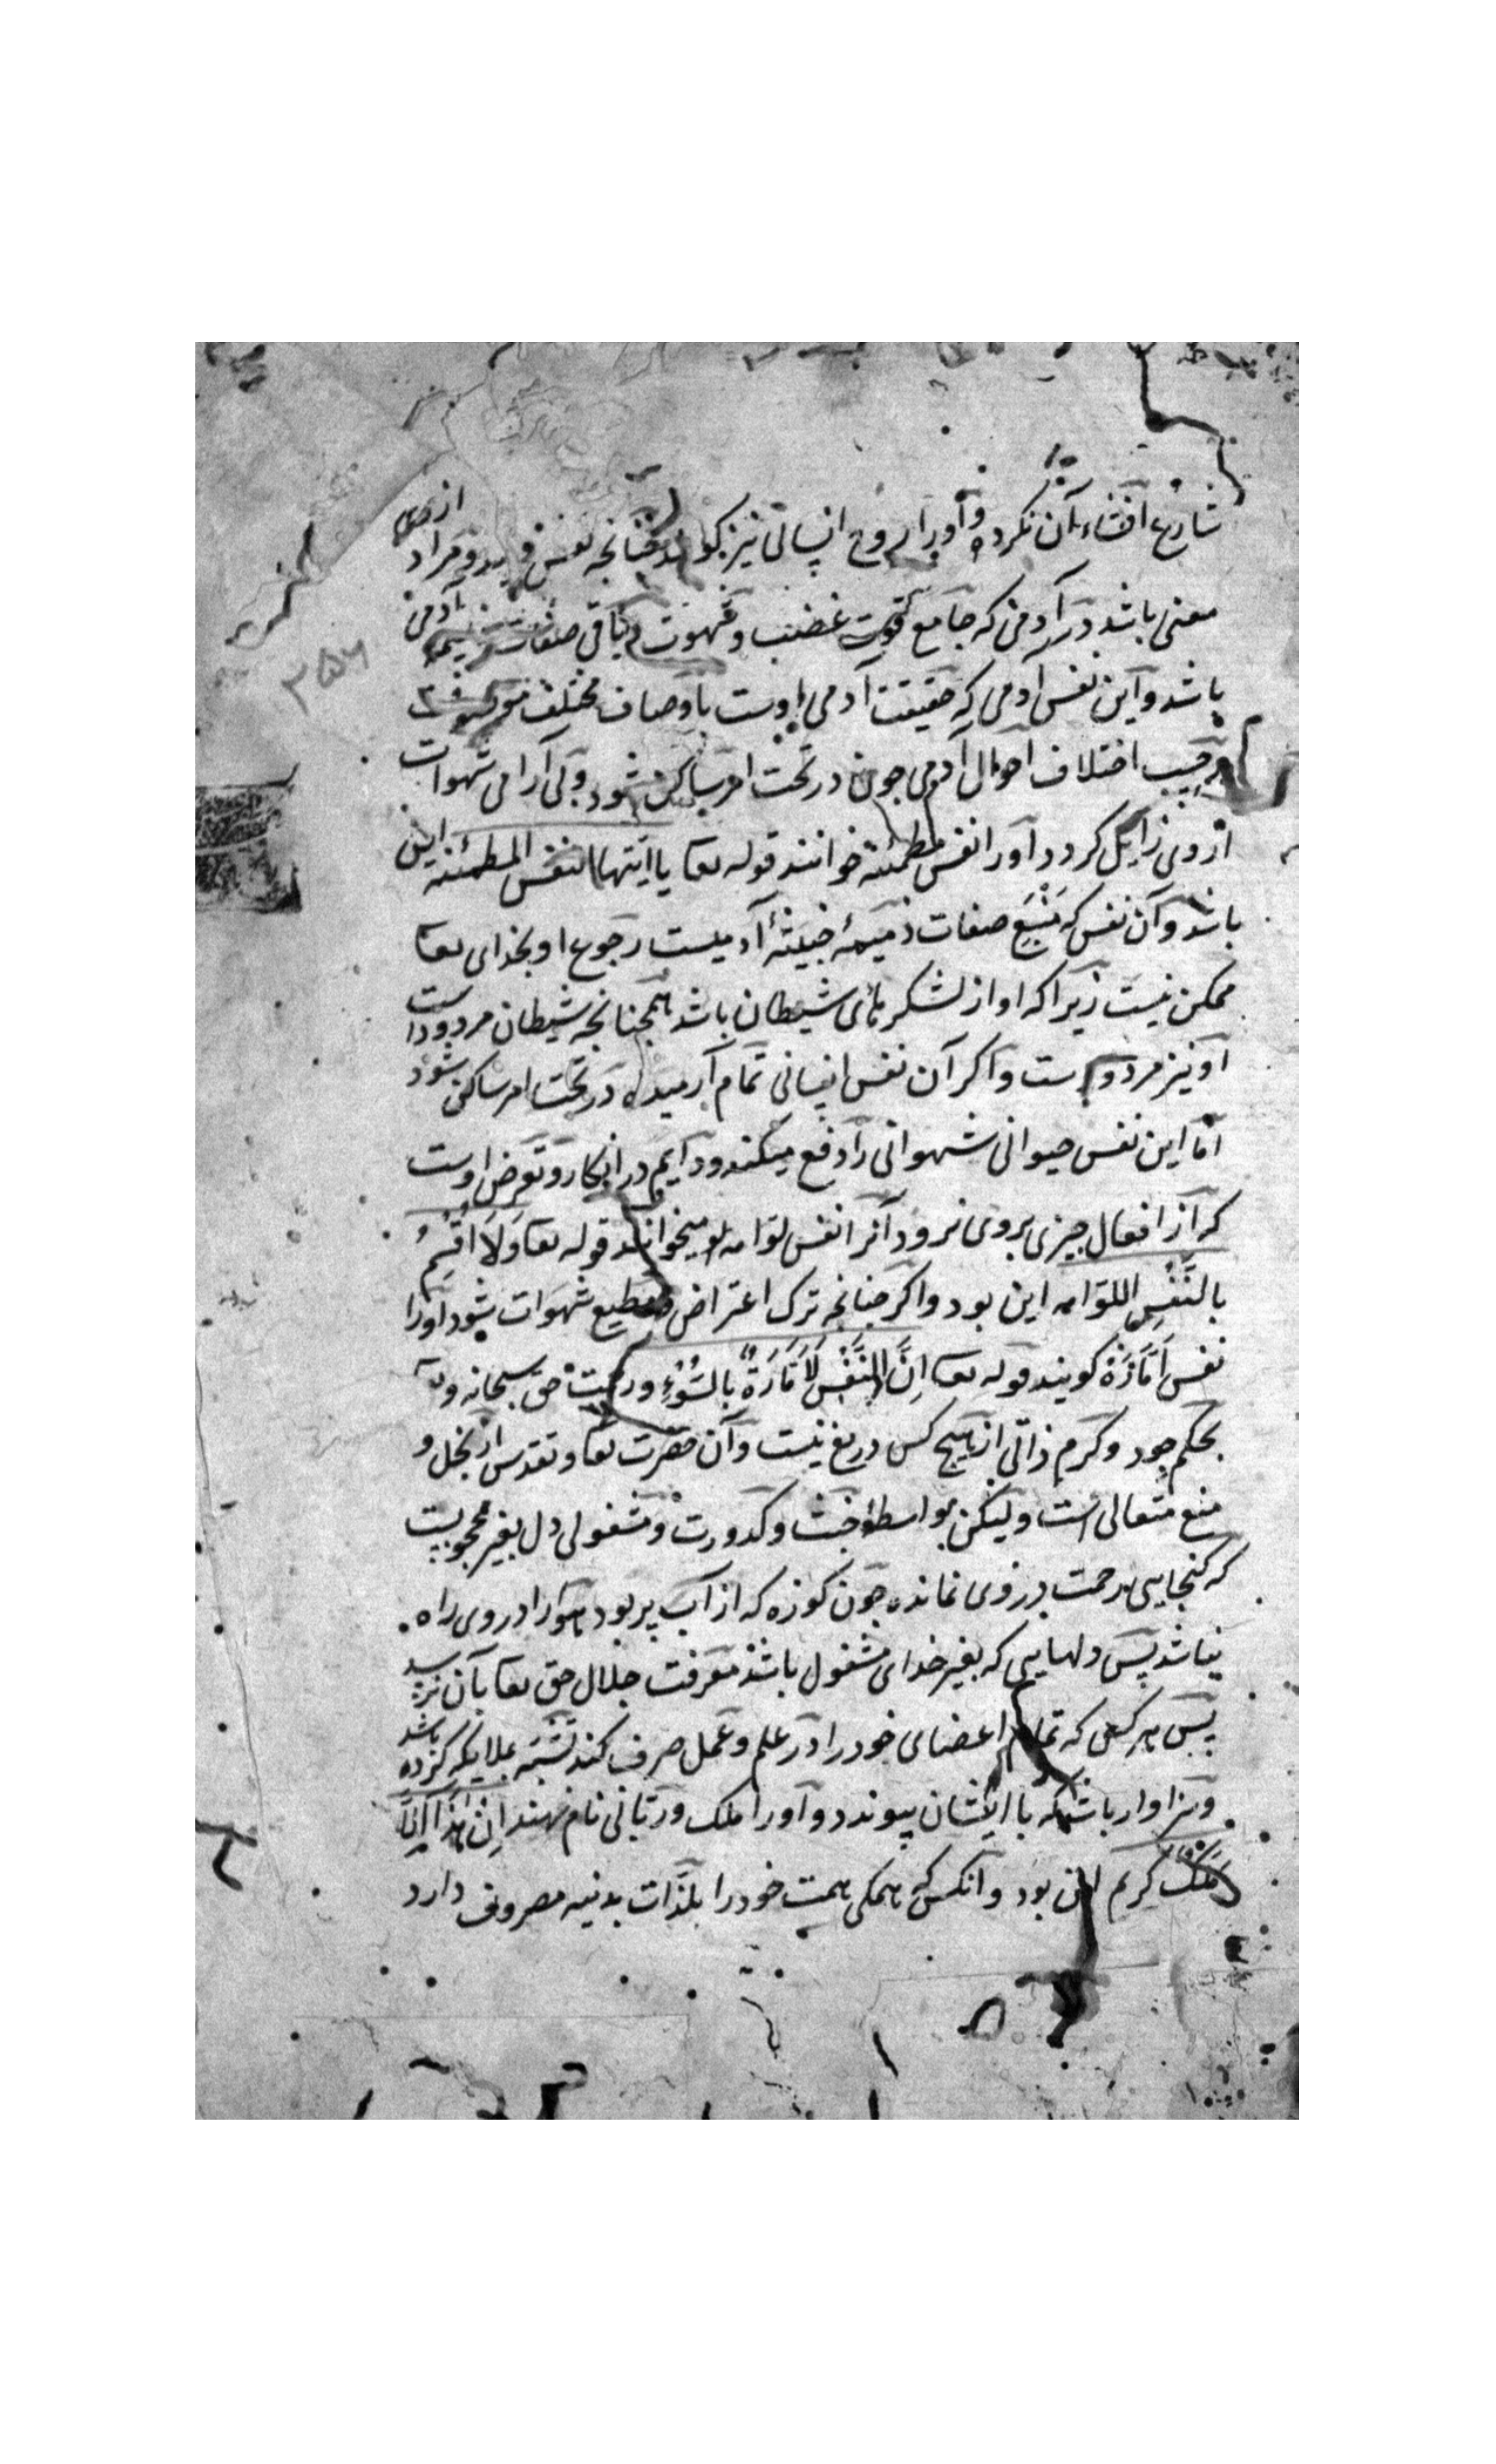 شارع افشاء آن نکرده و اورا روح انسانی نیز گویند چنانچه نفس گویند و مراد از وی
معنی باشد در آدمی که جامع قوت غضب و شهوت و باقی صفات ذمیمه آدمی
باشد و این نفس آدمی که حقیقت آدمی اوست باوصاف مختلف
بحسب اختلاف احوال آدمی چون در تحت امر ساکن شود و بی آرامی شهوات
از وی زایل کردد اورا نفس مطمئنه خوانند قوله تعا یا ایتها النفس المطمئنه این
باشد و آن نفس که منبع صفات ذمیمهٔ خبیثهٔ آدمیست رجوع او بخدای تعا
ممکن نیست زیرا که او از لشکرهای شیطان باشد همچنانچه شیطان مردود است
او نیز مردود است و اکر آن نفس انسانی تمام آرمیده در تحت امر ساکن شود
اما این نفس حیوانی شهوانی را دفع میکند و دایم در انکار و تعرض اوست
که از افعال چیزی بروی نرود آنرا نفس لوامه میخوانند قوله تعا وَلَا اُقْسِمُ
بالنَّفْسِ اللوّامه این بود و اکر چنانچه ترک اعتراض و مطیع شهوات شود اورا
نفس اَمّارَة کویند قوله تعا اِنَّ النَّفْسَ لَاَمّارَةٌ بالسُّوْءِ و رحمت حق سبحانه وتعا
بحکم جود و کرم ذاتی از هیچ کس دریغ نیست و آن حضرت تعا و تقدس از بخل و
منع متعالی است ولیکن بواسطهٔ خبث و کدورت و مشغولی دل بغیر محجوبیست
که کنجایی رحمت در وی نمانده چون کوزه که از آب پر بود هوا را در وی راه
نباشد پس دلهایی که بغیر خدای مشغول باشد معرفت جلال حق تعا بآن نرسد
پس هر کسی که تمام اعضای خود را در علم و عمل صرف کند تشبّه بملایکه کرده باشد
و سزاوار باشد که با ایشان پیوندد و اورا ملک و ربّانی نام نهند اِنْ هٰذَا اِلَّا
مَلَک کریم این بود و آنکس که همکی همت خود را بلذّات بدنیه مصروف دارد